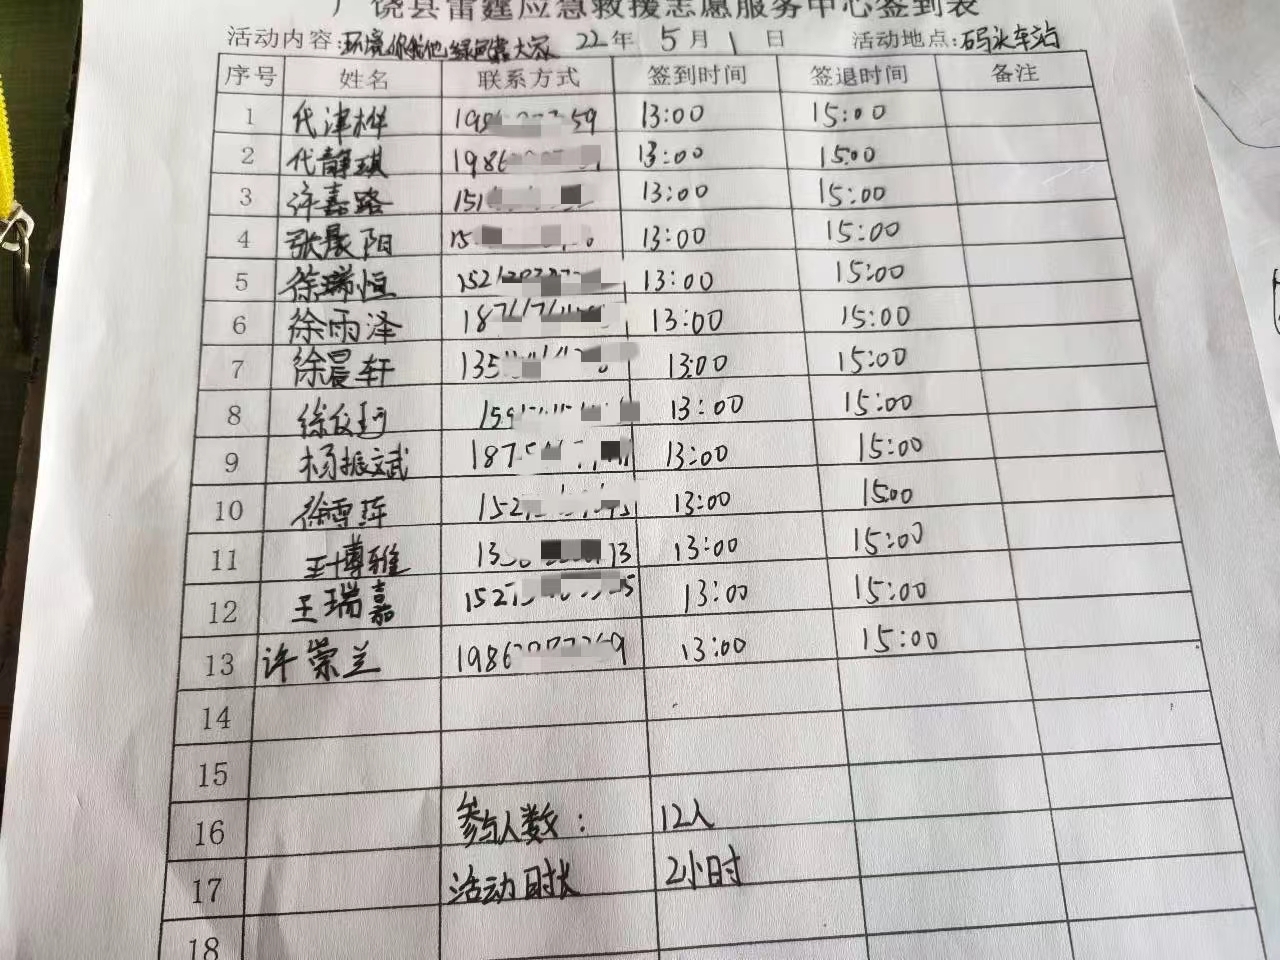 广饶县雷霆应急救援志愿服务中心签到表
活动内容:环境你我他,绿色靠大家 22年 5月 1日 活动地点:码头车站
序号 姓名 联系方式 签到时间 签退时间 备注
1 代津桦 13:00 15:00
2 代静琪 13:00 15:00
3 许嘉路 13:00 15:00
4 张晨阳 13:00 15:00
5 徐瑞恒 13:00 15:00
6 徐雨泽 13:00 15:00
7 徐晨轩 13:00 15:00
8 13:00 15:00
9 杨振斌 13:00 15:00
10 13:00 15:00
11 王博雅 13:00 15:00
12 王瑞嘉 13:00 15:00
13 许崇兰 13:00 15:00
14
15
16 参与人数: 12人
17 活动时长 2小时
18